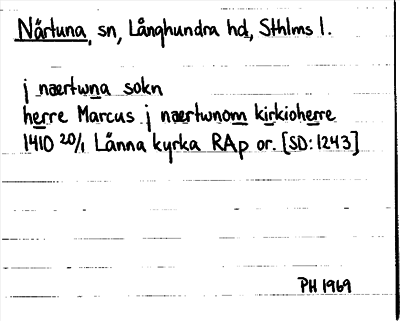 Närtuna, sn, Långhundra hd, Sthlms l.
j nærtwna sokn
herre Marcus j nærtwnom kirkioherre
1410 20/1 Länna kyrka RAp or. [SD:1243]
PH 1969